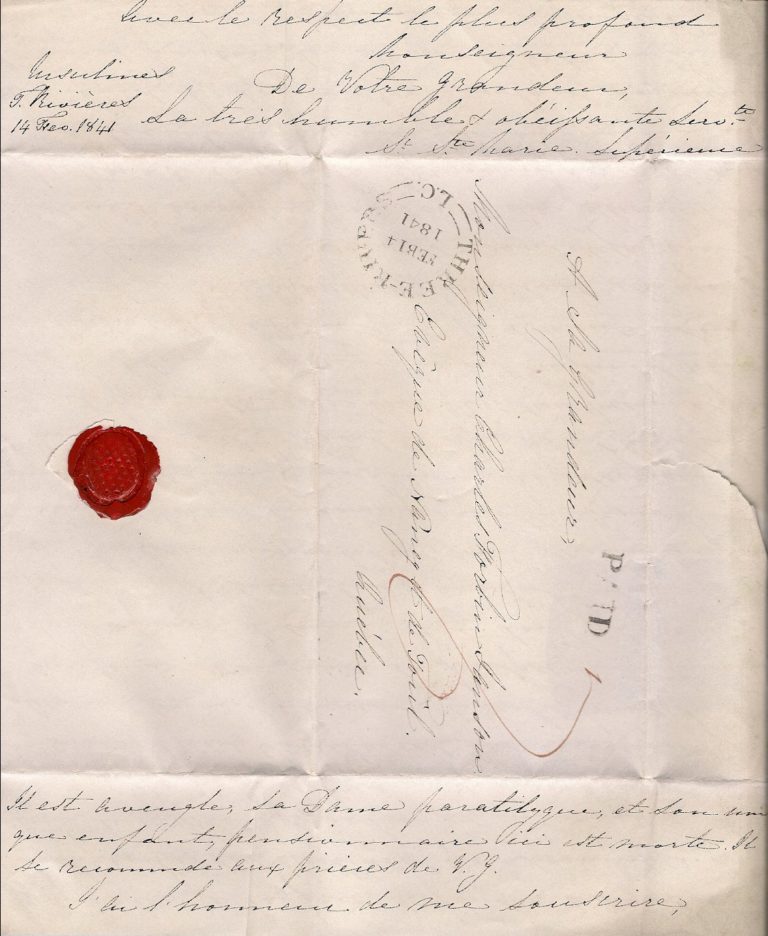 avec le respect le plus profond
Monseigneur
De Votre Grandeur,
La très humble & obéissante Servte
Sr. Ste Marie. Supérieure
Ursulines
T. Rivières
14 Feo. 1841
THREE-RIVERS
L.C.
FEB 14
1841
A Sa Grandeur,
Monseigneur Charles Forbin Janson
Evêque de Nancy & de Toul.
Québec.
PAID
Il est aveugle, sa Dame paratilyque, et son uni
que enfant, pensionnaire ici est morte. Il
se recommde aux prières de V. G.
J'ai l'honneur de me souscrire,